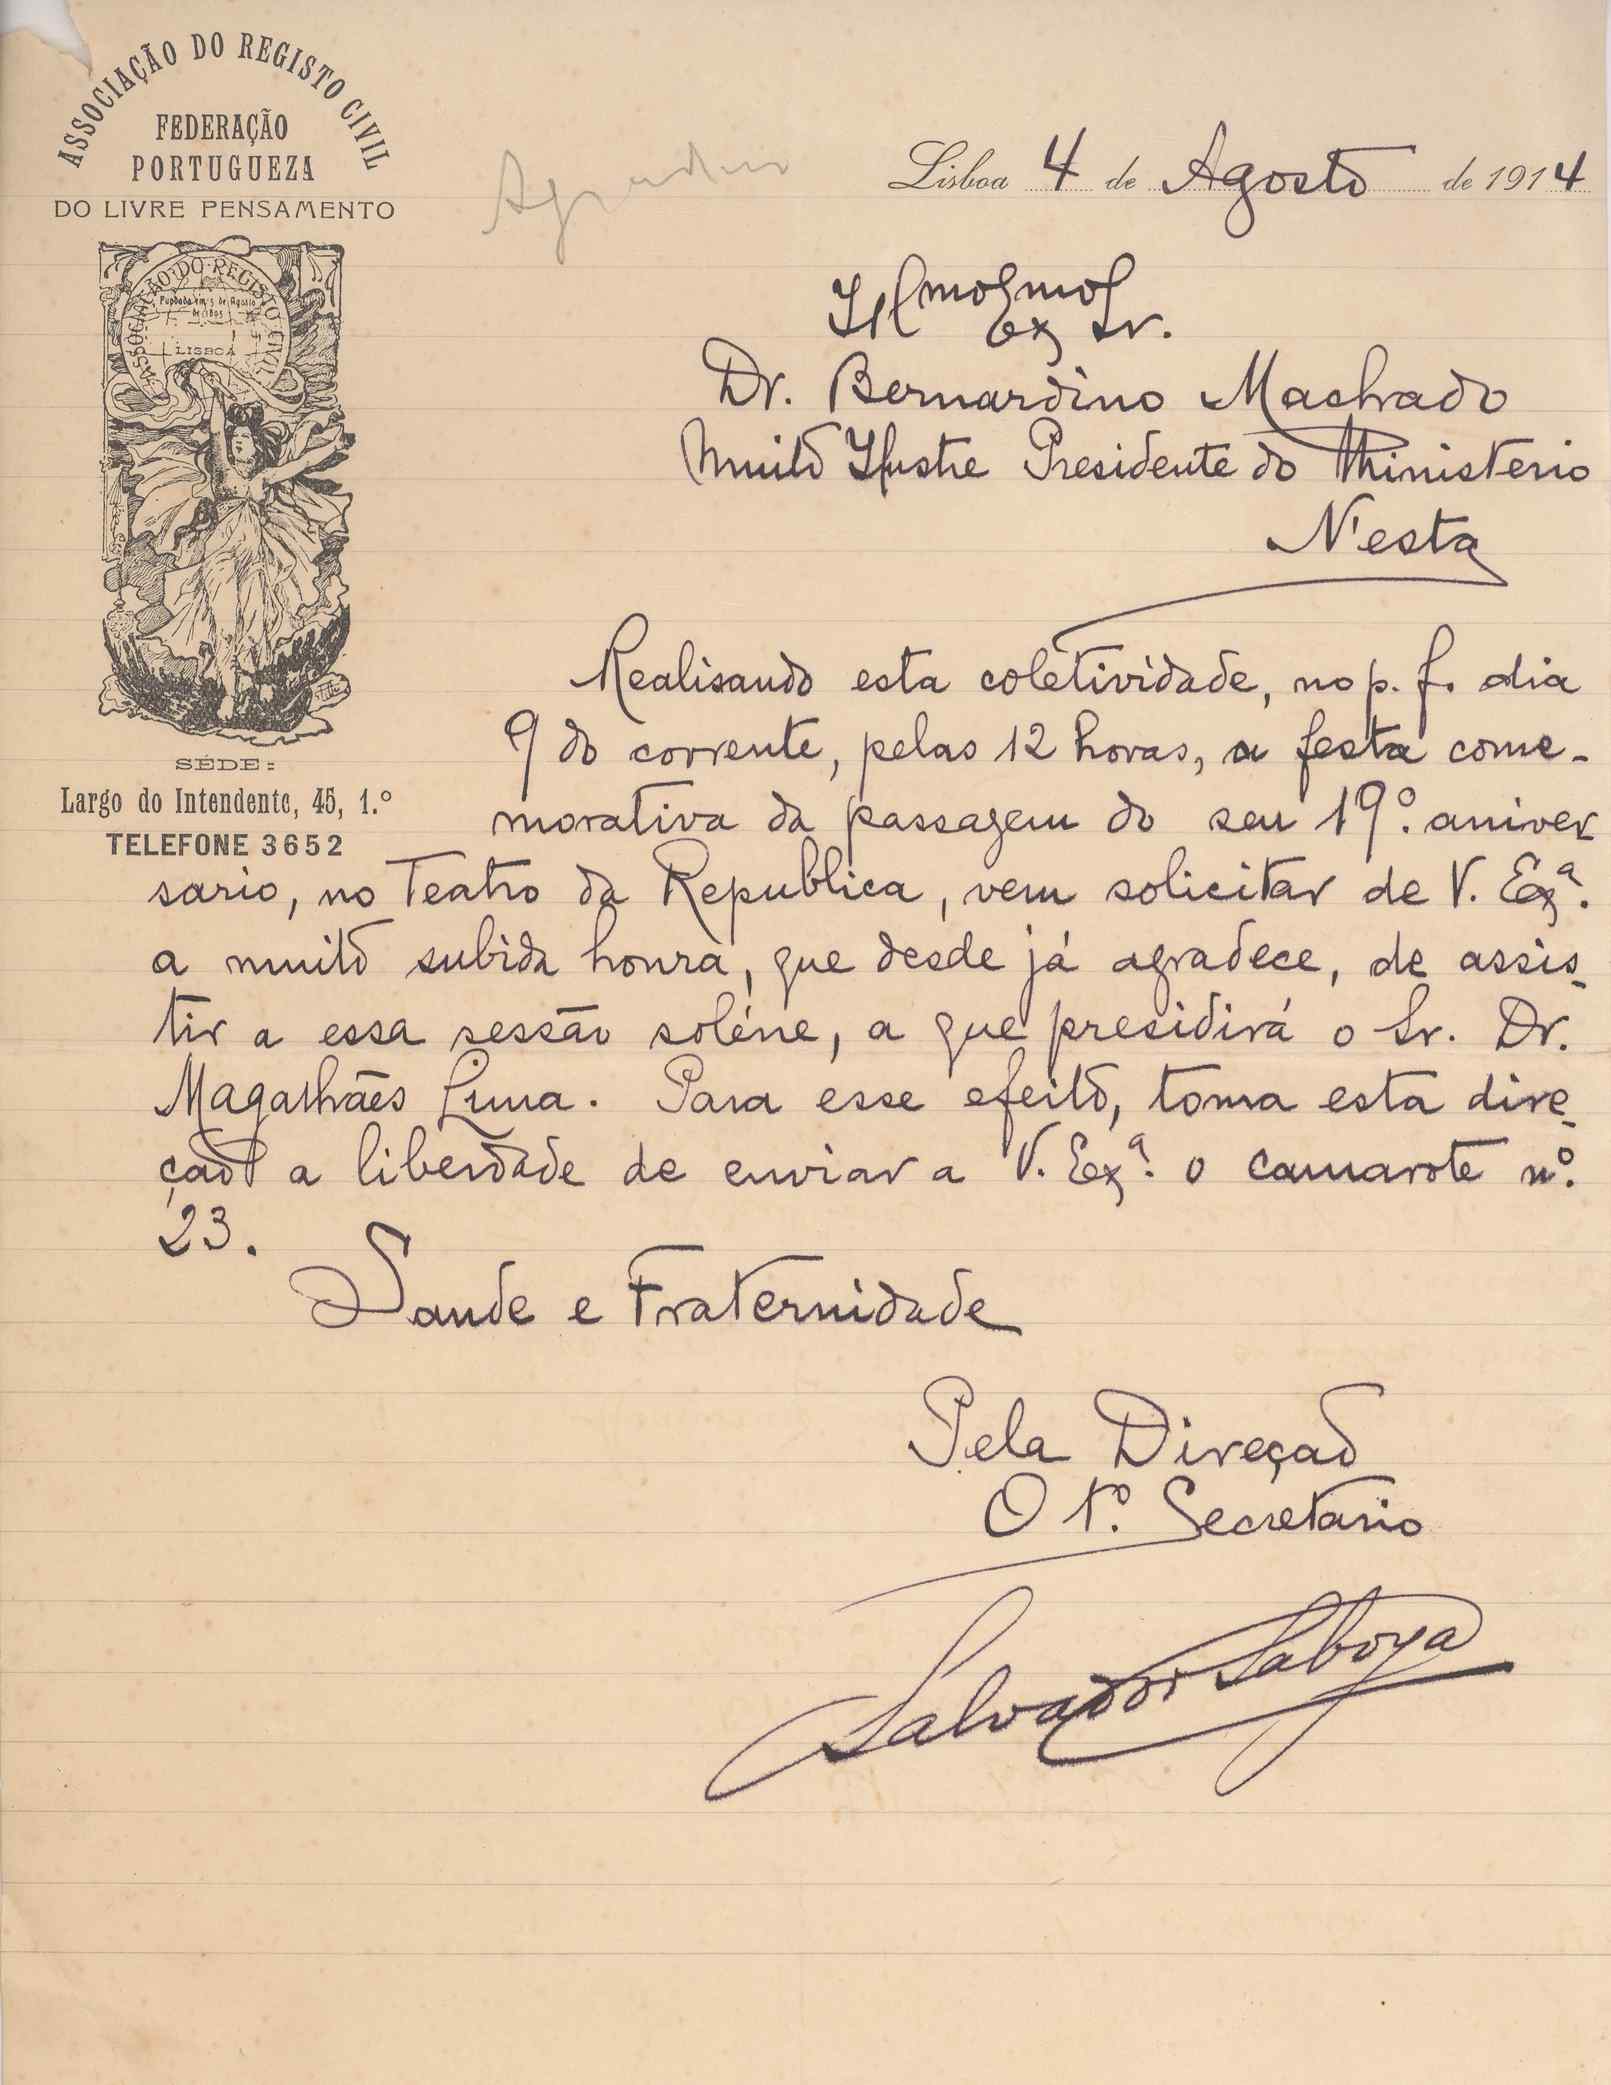 ASSOCIAÇÃO DO REGISTO CIVIL
FEDERAÇÃO
PORTUGUEZA
DO LIVRE PENSAMENTO
ASSOCIAÇÃO DO REGISTO CIVIL
Fundada em 5 de Agosto
de 1895
LISBOA
SÉDE:
Largo do Intendente, 45, 1.º
TELEFONE 3652
Lisboa 4 de Agosto de 1914
Illmo Exmo Sr.
Dr. Bernardino Machado
Muito Illustre Presidente do Ministerio
N'esta
Realisando esta coletividade, no p. f. dia
9 do corrente, pelas 12 horas, a festa come-
morativa da passagem do seu 19º. aniver
sario, no Teatro da Republica, vem solicitar de V. Exª.
a muito subida honra, que desde já agradece, de assis-
tir a essa sessão soléne, a que presidirá o Sr. Dr.
Magalhães Lima. Para esse efeito, toma esta dire-
ção a liberdade de enviar a V. Exª. o camarote nº.
23.
Saude e Fraternidade
Pela Direção
O 1º. Secretario
Salvador Saboya